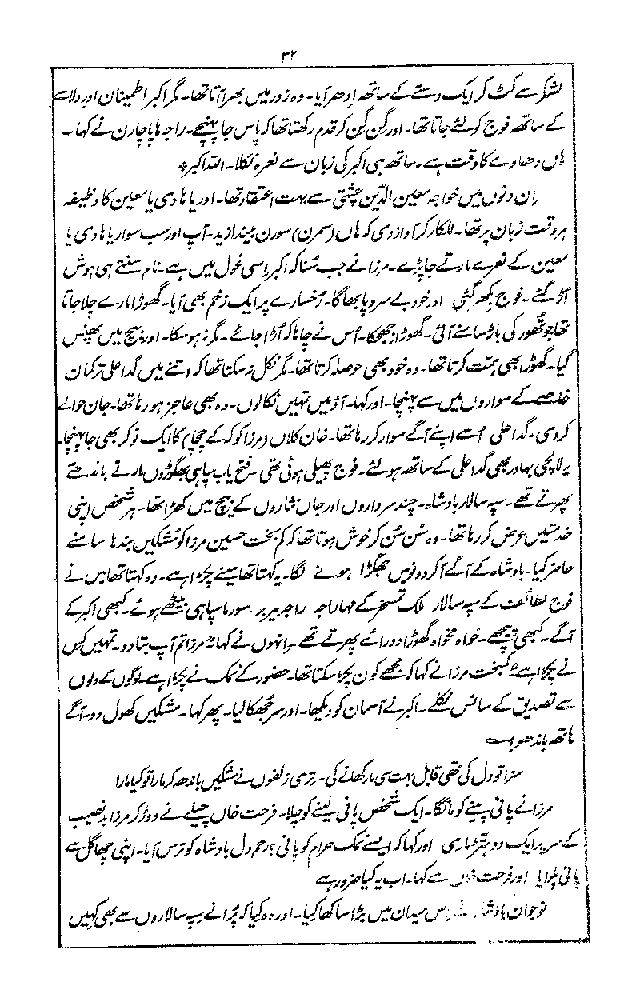 ۳۴
لشکر سے کٹ کر ایک دستے کے ساتھ ادھر آیا۔ وہ زور میں بھرا آتا تھا۔ مگر اکبر اطمینان اور دلاسے
کے ساتھ فوج کو لئے جاتا تھا۔ اور گن گن کر قدم رکھتا تھا کہ پاس جا پہنچے۔ راجہ ہاپا چارن نے کہا۔
ہاں دھاوے کا وقت ہے۔ ساتھ ہی اکبر کی زبان سے نعرہ نکلا۔ اللہ اکبر
ان دنوں میں خواجہ معین الدین چشتی سے بہت اعتقاد تھا۔ اور یا ہادی یا معین کا وظیفہ
ہر وقت زبان پر تھا۔ للکار کر آواز دی کہ ہاں (سمرن) سورن بیندازید۔ آپ اور سب سوار یا ہادی یا
معین کے نعرے مارتے جا پڑے۔ مرزا نے جب سنا کہ اکبر اسی غول میں ہے۔ نام سنتے ہی ہوش
اڑ گئے۔ فوج بکھر گئی اور خود بے سر و پا بھاگا۔ رخسارے پر ایک زخم بھی آیا۔ گھوڑا مارے چلا جاتا
تھا جو تھور کی باڑ سامنے آئی۔ گھوڑا جھجکا۔ اس نے چاہا کہ اڑا جائے۔ مگر نہ ہو سکا۔ اور بیچ میں پھنس
گیا۔ گھوڑا بھی ہمت کرتا تھا۔ وہ خود بھی حوصلہ کرتا تھا۔ مگر نکل نہ سکتا تھا کہ اتنے میں گدا علی ترکمان
خاصے کے سواروں میں سے پہنچا۔ اور کہا۔ آؤ میں تمہیں نکالوں۔ وہ بھی عاجز ہو رہا تھا۔ جان حوالے
کر دی۔ گدا علی اسے اپنے آگے سوار کر رہا تھا۔ خان کلاں (مرزا کوکہ کے چچا) کا ایک نوکر بھی جا پہنچا۔
یہ لالچی بہادر بھی گدا علی کے ساتھ ہو لئے۔ فوج پھیلی ہوئی تھی فتح یاب سپاہی بھگوڑوں کو مارتے باندھتے
پھرتے تھے۔ سپہ سالار بادشاہ۔ چند سرداروں اور جاں نثاروں کے بیچ میں کھڑا تھا۔ ہر شخص اپنی
خدمتیں عرض کر رہا تھا۔ وہ سن سن کر خوش ہوتا تھا کہ کم بخت حسین مرزا کو مشکیں بندھا سامنے
حاضر کیا۔ بادشاہ کے آگے آ کر دونوں میں جھگڑا ہونے لگا۔ یہ کہتا تھا میں نے پکڑا ہے۔ وہ کہتا تھا میں نے
فوج لطائف کے سپہ سالار ملک تمسخر کے مہاراجہ راجہ بیربر۔ سورما سپاہی بنے ہوئے۔ کبھی اکبر کے
آگے۔ کبھی پیچھے۔ خواہ مخواہ گھوڑا دوڑائے پھرتے تھے۔ انہوں نے کہا۔ مرزا تم آپ بتا دو۔ تمہیں کس
نے پکڑا ہے؟ کمبخت مرزا نے کہا کہ مجھے کون پکڑ سکتا تھا۔ حضور کے نمک نے پکڑا ہے۔ لوگوں کے دلوں
سے تصدیق کے سانس نکلے۔ اکبر نے آسمان کو دیکھا۔ اور سر جھکا لیا۔ پھر کہا۔ مشکیں کھول دو۔ آگے
ہاتھ باندھو
سزا تو دل کی تھی قابل بہت سی مار کھانے کی۔ تری زلفوں نے مشکیں باندھ کر مارا تو کیا مارا
مرزا نے پانی پینے کو مانگا۔ ایک شخص پانی لینے کو چلا۔ فرحت خاں چیلے نے دوڑ کر مرزا بدنصیب
کے سر پر ایک دوہتڑ ماری اور کہا کہ ایسے نمک حرام کو پانی؟ رحم دل بادشاہ کو ترس آیا۔ اپنی چھاگل سے
پانی پلوایا اور فرحت خاں سے کہا۔ اب یہ کیا ضرور ہے
نوجوان بادشاہ نے اس میدان میں بڑا ساکھا کیا۔ اور وہ کیا کہ پرانے سپہ سالاروں سے بھی کہیں